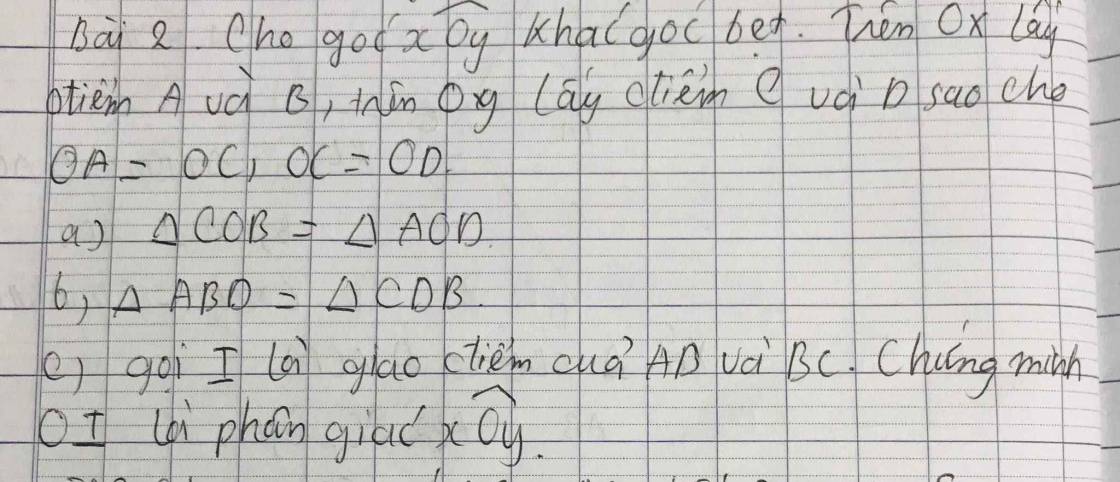 Bài 2. Cho góc xÔy khác góc bẹt. Trên Ox lấy
điểm A và B, trên Oy lấy điểm C và D sao cho
OA = OC, OC = OD.
a) Δ COB = Δ AOD.
b, Δ ABD = Δ CDB.
c) gọi I là giao điểm của AD và BC. Chứng minh
OI là phân giác xÔy.